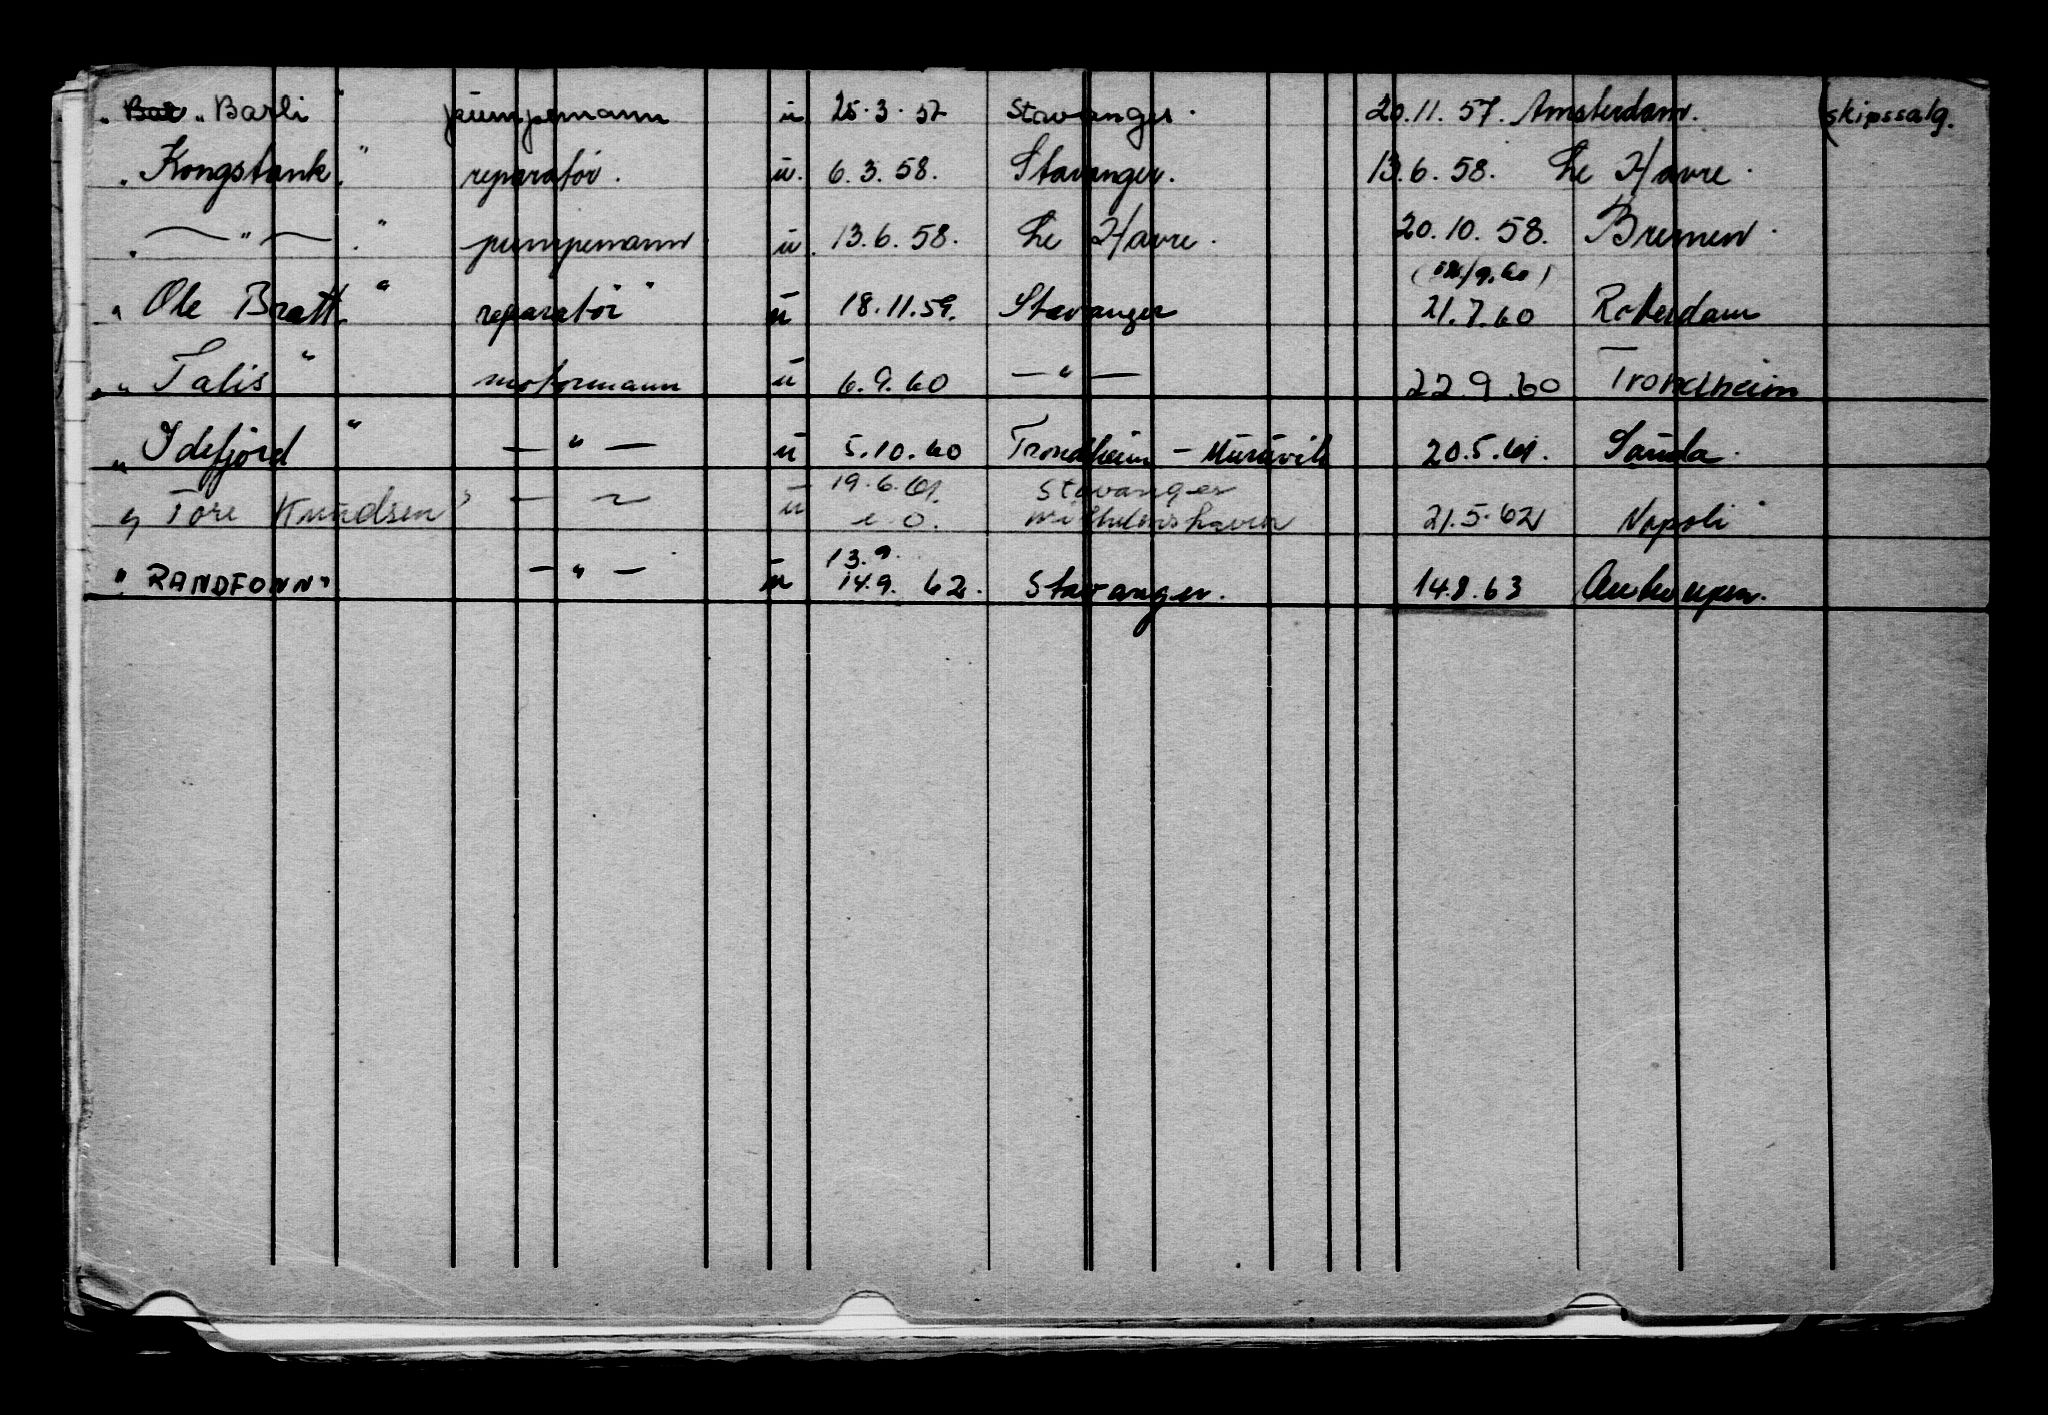 " ~~Bar~~ " Barli " pumpemann u 25.3.57 Stavanger. 20.11.57. Amsterdam. (skipssalg.
" Kongstank. " reparatör. u. 6.3.58. Stavanger. 13.6.58. Le Havre.
" — " — . " pumpemann u. 13.6.58. Le Havre. 20.10.58. Bremen.
" Ole Bratt. " reparatör " u 18.11.59. Stavanger 21.7.60 Roterdam
" Talis " motormann u 6.9.60 — " — 22.9.60 Trondheim
" Idefjord " — " — u 5.10.60 Trondheim - Muruvik 20.5.61. Sauda.
" Tore Knudsen " — " — u 19.6.61. Stavanger
e.o. Wilhelmshaven 21.5.62 Napoli
13.9.
" RANDFONN" — " — u 14.9.62. Stavanger. 14.8.63 Antwerpen.